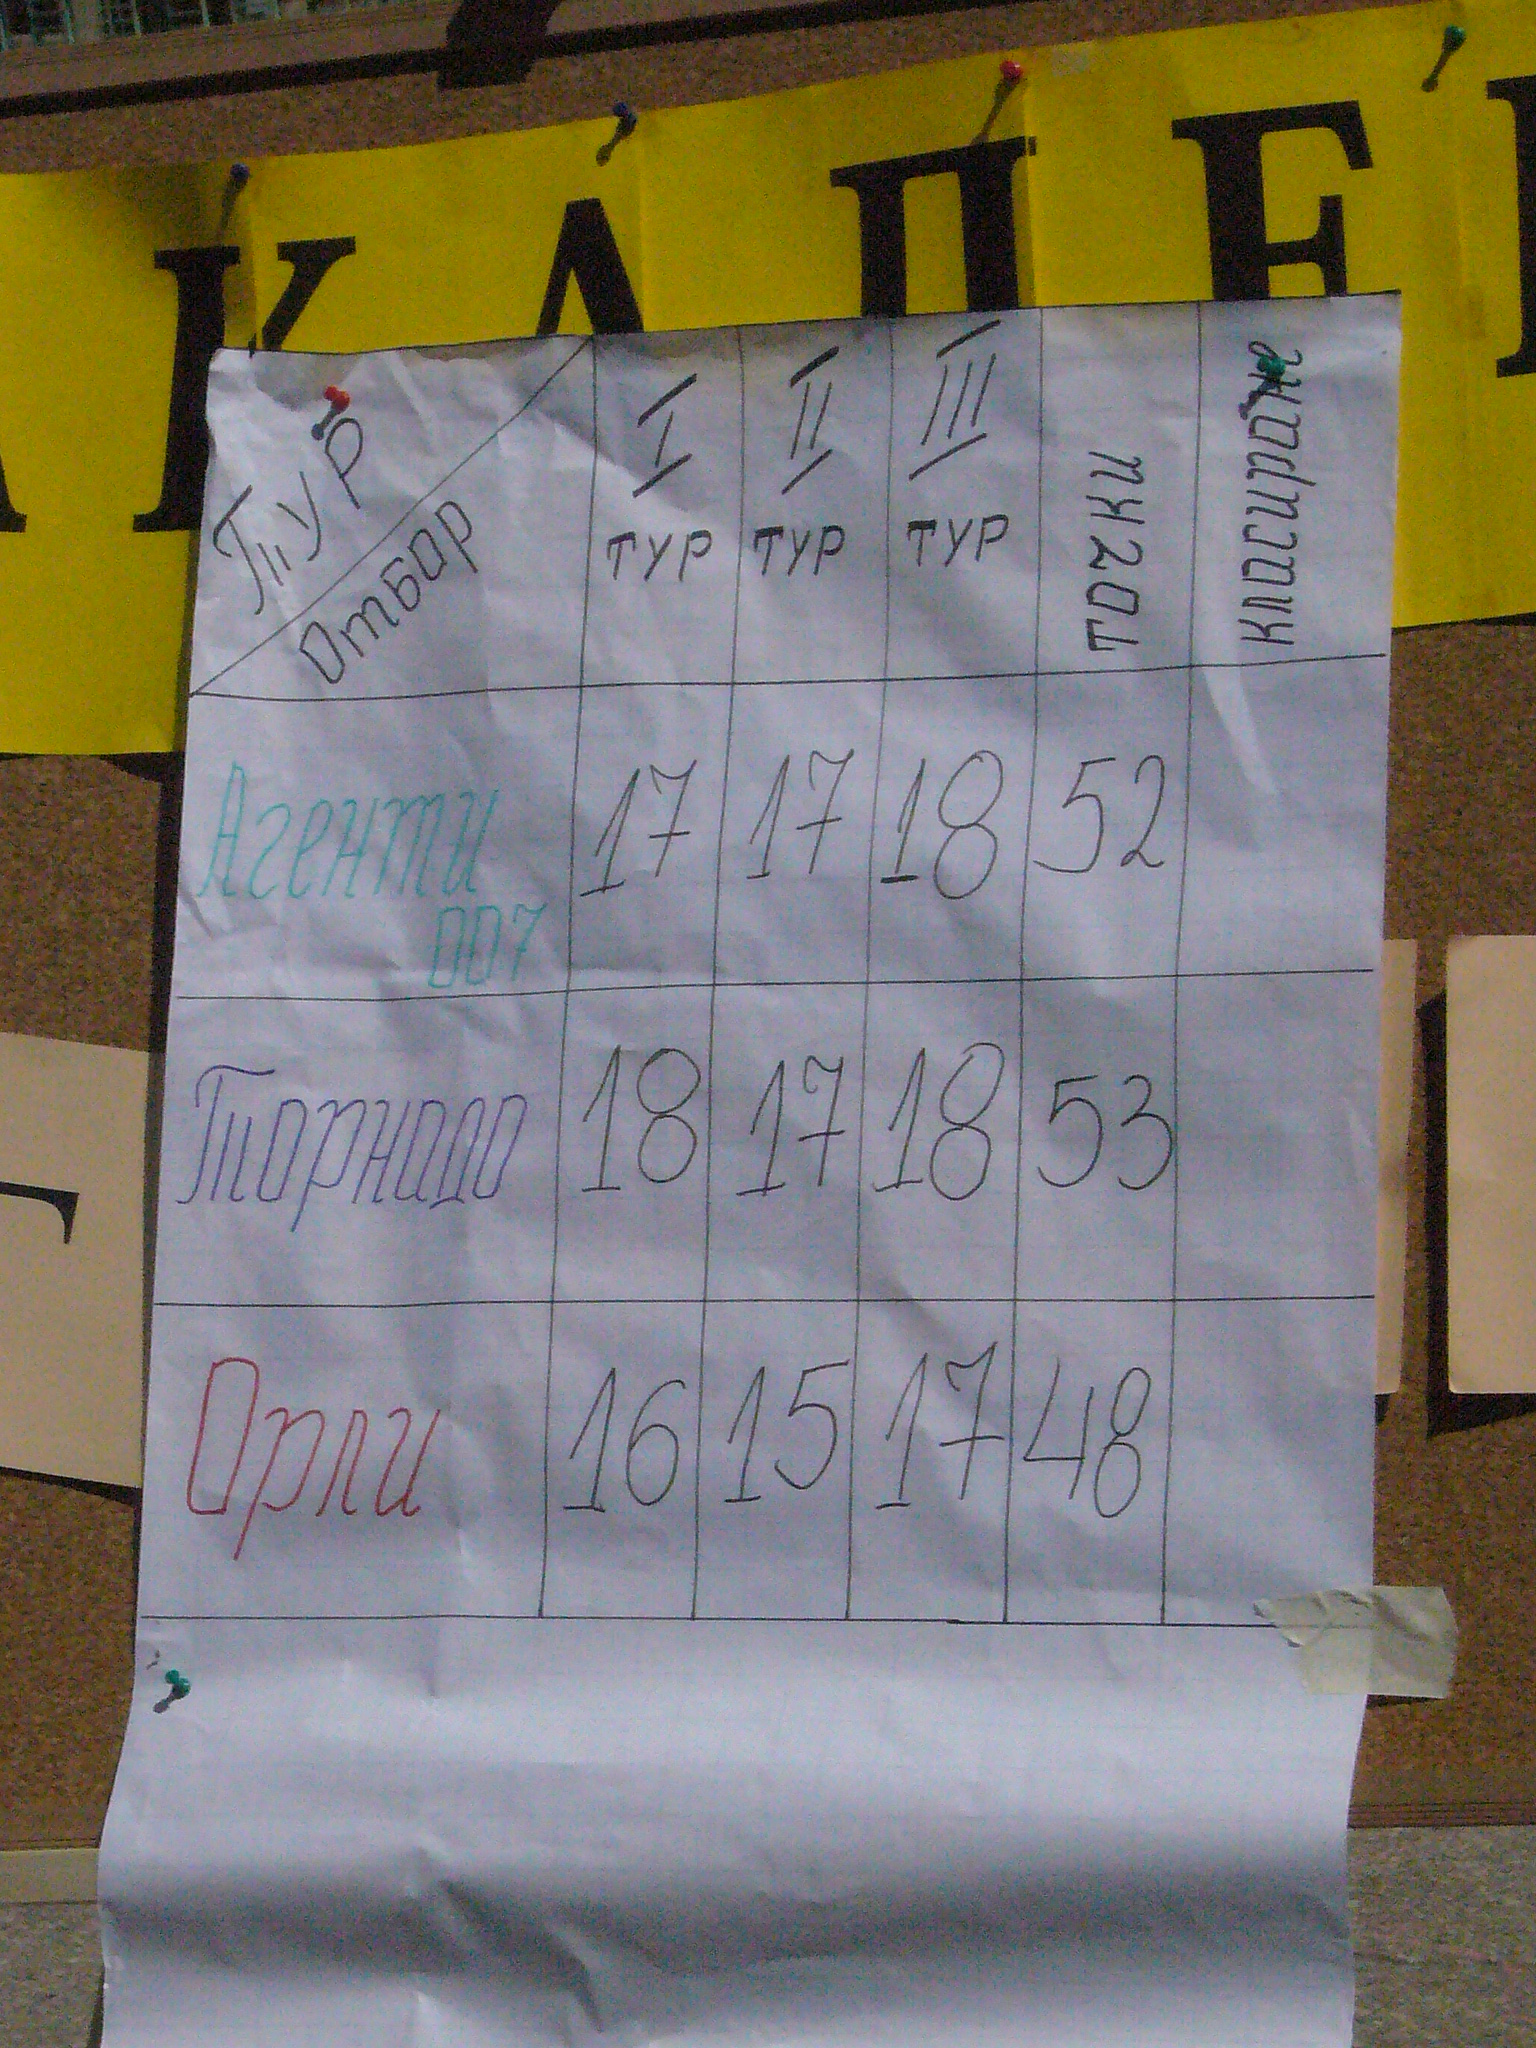 КАПЕ
Тур
Отбор
I тур
II тур
III тур
точки
класиране
Агенти 007
17
17
18
52
Торнадо
18
17
18
53
Орли
16
15
17
48